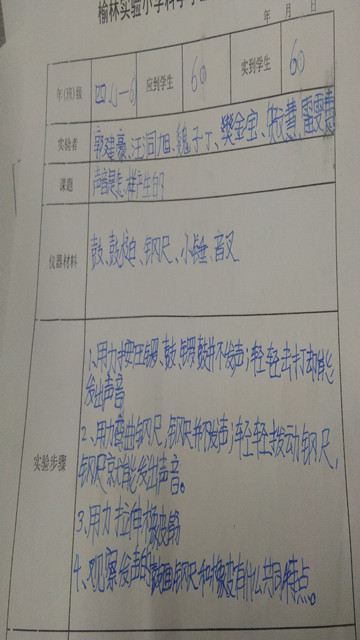 榆林实验小学科学学生
年 月 日
年(班)级 四(1—6) 应到学生 60 实到学生 60
实验者 郭建豪、汪润旭、魏子丁、樊金宝、雷雯慧
课题 声音是怎样产生的?
仪器材料 鼓、鼓槌、钢尺、小锤、音叉
1、用力按压锣、鼓,锣鼓并不发声;轻轻击打却能
发出声音
2、用力弯曲钢尺,钢尺并不发声;轻轻拨动钢尺,
实验步骤
钢尺就能发出声音。
3、用力拉伸橡皮筋
4、观察发声的鼓面钢尺和橡皮有什么共同特点。